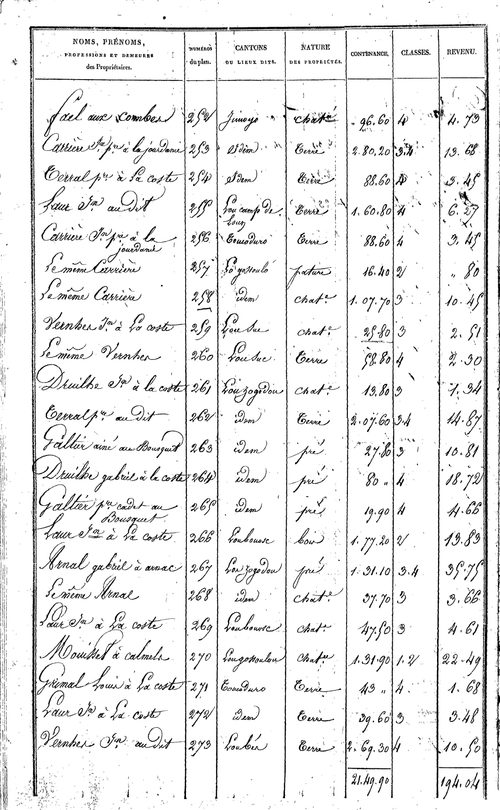 NOMS, PRÉNOMS, PROFESSIONS ET DEMEURES des Propriétaires. NUMÉROS du plan. CANTONS OU LIEUX DITS. NATURE DES PROPRIÉTÉS. CONTENANCE. CLASSES. REVENU.
fael aux combes 252 chat.e 96.60 4 4.73
Carrière Jn pre à la jourdanie 253 idem Terre 2.80.20 3.4 13.68
Terral pre à La coste 254 idem Terre 88.60 4 3.45
Laur Jn au dit 255 Lou camp de Terre 1.60.80 4 6.27
Carrière Jn pre à la jourdanie 256 Tomaduro Terre 88.60 4 3.45
Le même Carrière 257 pature 16.40 2 " 80
Le même Carrière 258 idem chat.e 1.07.70 3 10.45
Vernhes Jn à La coste 259 Lou Suc chat.e 25.80 3 2.51
Le même Vernhes 260 Lou Suc Terre 58.80 4 2.30
Druilhe Jn à la coste 261 Lou zogodou chat.e 13.80 3 1.34
Terral pre au dit 262 idem Terre 2.07.60 3.4 14.87
Galtier ainé au Bousquet 263 idem pré 27.80 3 10.81
Druilhe gabriel à la coste 264 idem pré 80 " 4 18.72
Galtier pre cadet au Bousquet 265 idem pré 19.90 4 4.66
Laur Jn à La coste 266 Loubousc bois 1.77.20 2 13.83
Arnal gabriel à arnac 267 Lou zogodou pré 1.31.10 3.4 35.75
Le même Arnal 268 idem chat.e 37.70 3 3.66
Laur Jn à La coste 269 Loubousc chat.e 47.50 3 4.61
Mouisset à calmels 270 chat.e 1.31.90 1.2 22.49
Grimal Louis à La coste 271 Tomaduro Terre 43 " 4 1.68
Laur Jn à La coste 272 idem Terre 39.60 3 3.48
Vernhes Jn au dit 273 Loubès Terre 2.69.30 4 10.50
21.49.90 194.04